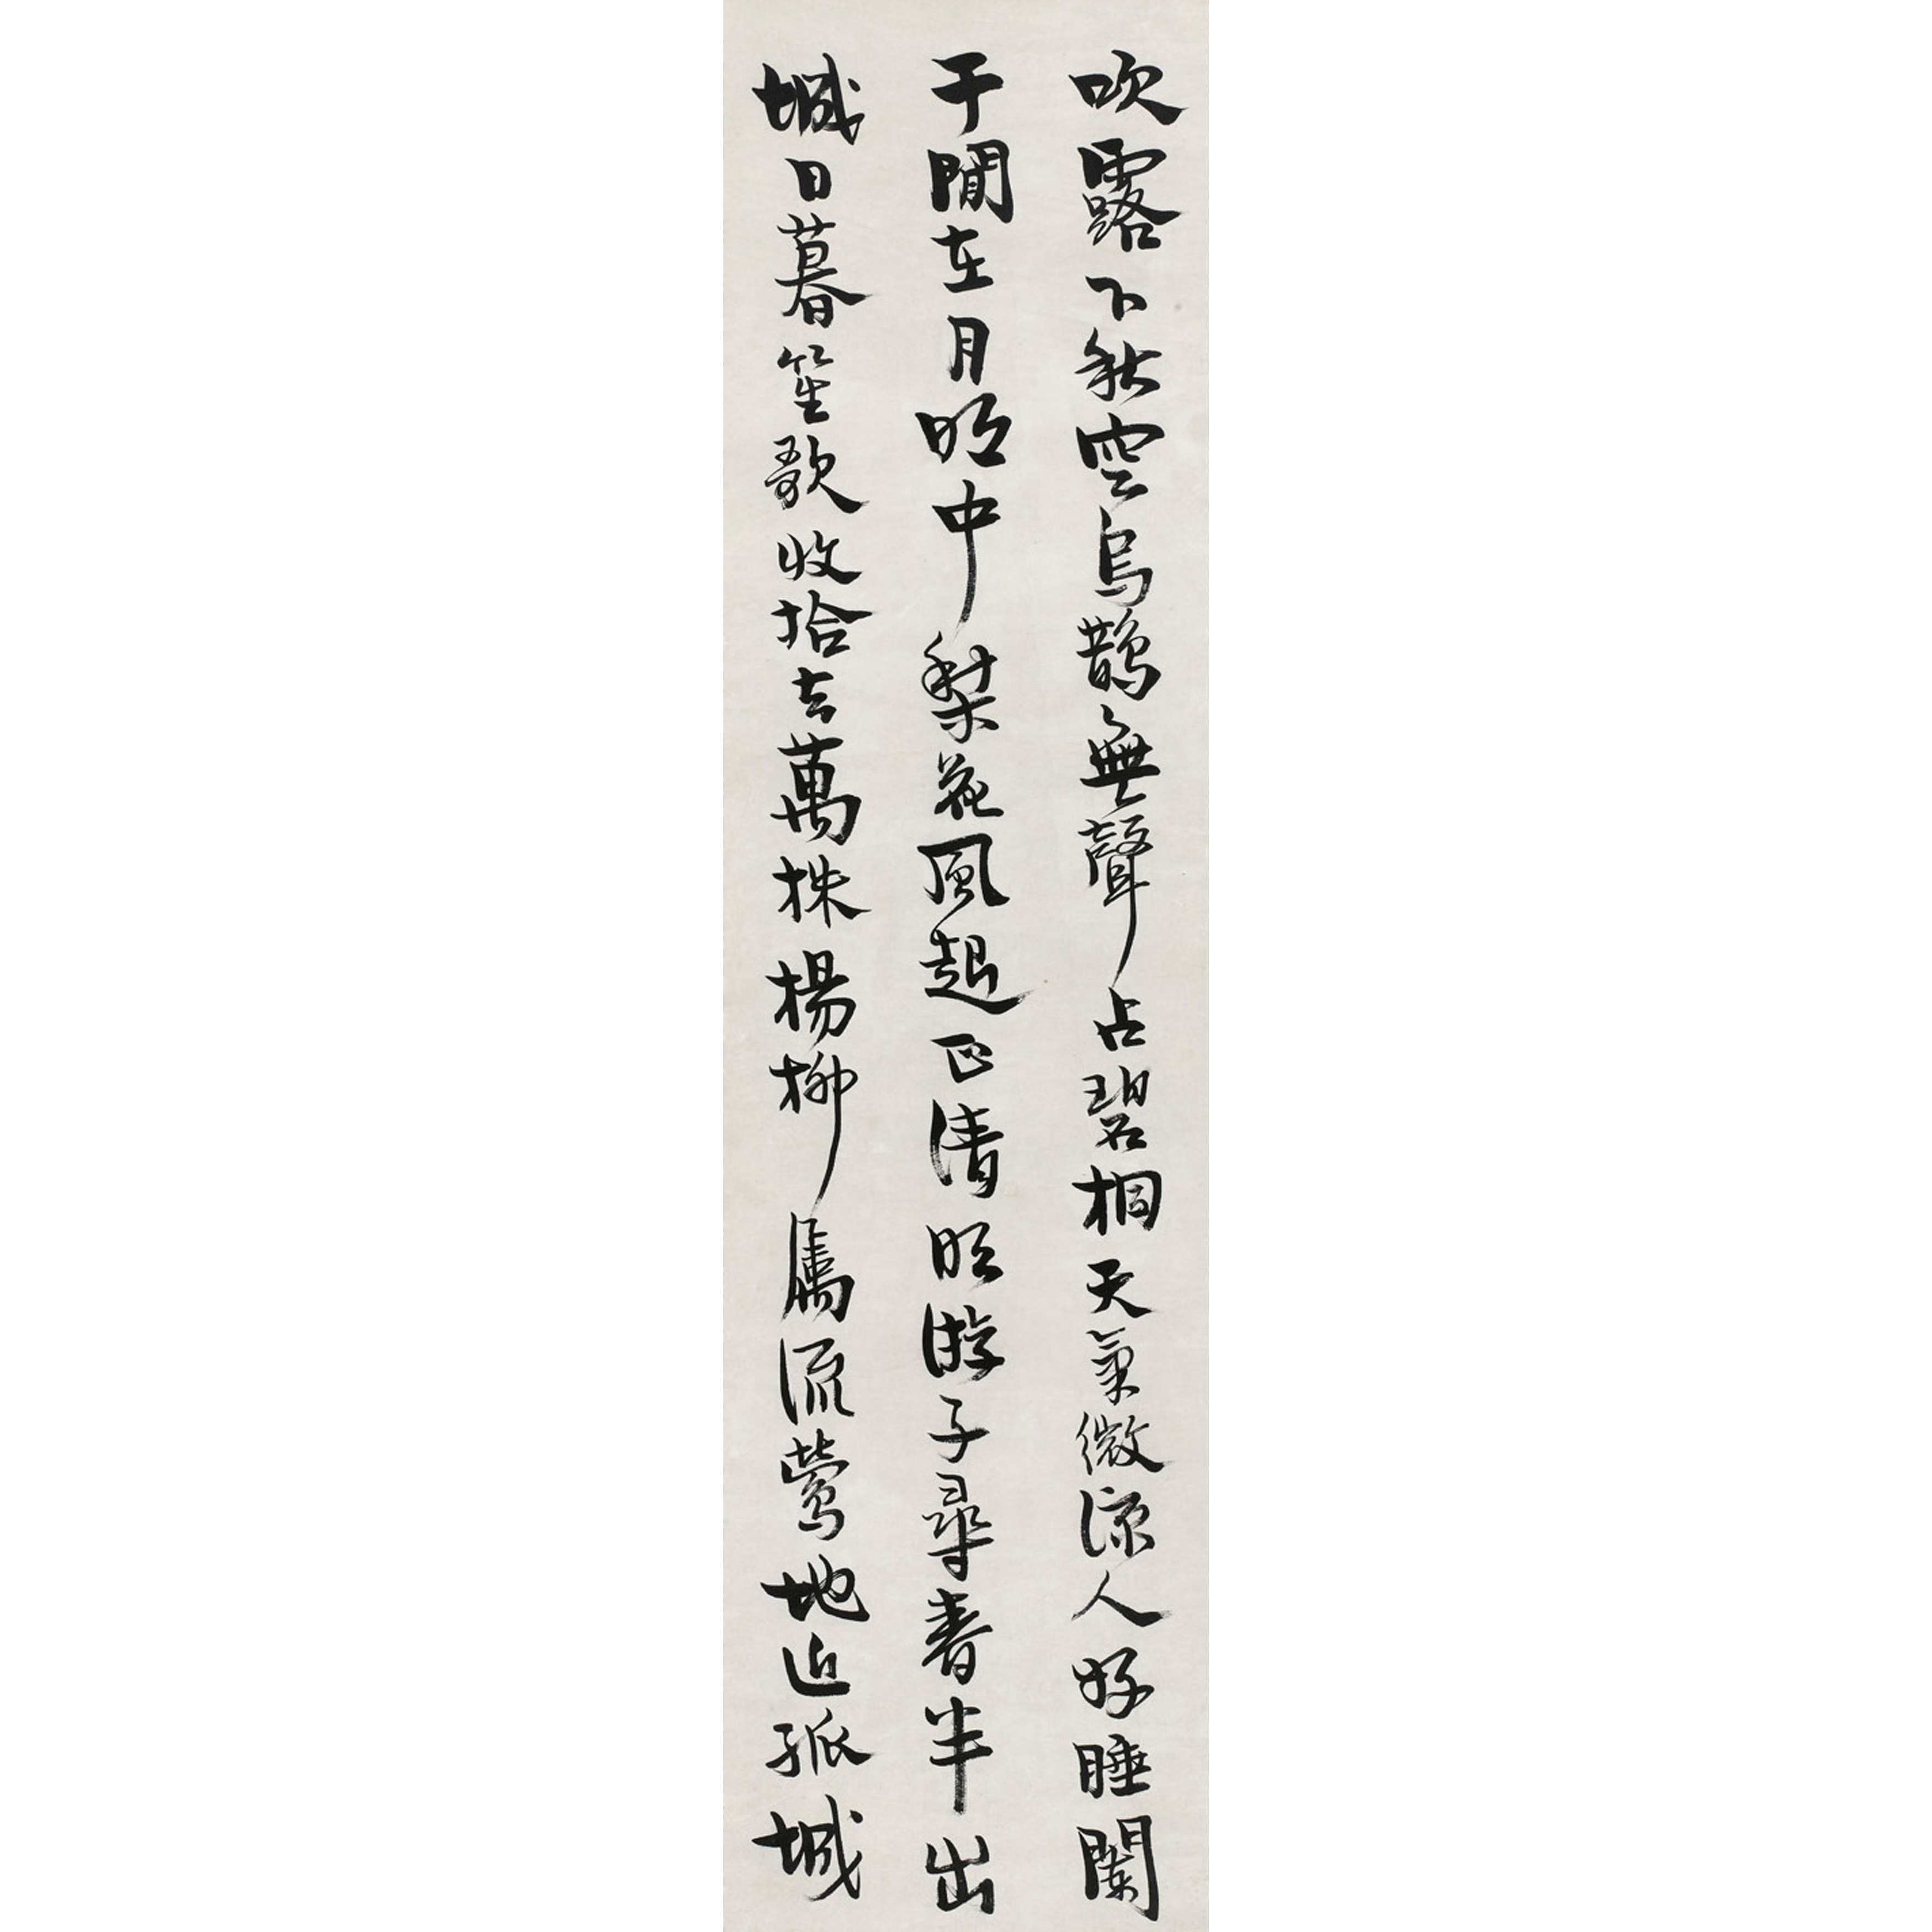 吹露下秋空烏鵲無聲占碧桐天氣微涼人好睡闌
干閒在月明中棃花風起正清明游子尋春半出
城日暮笙歌收拾去萬株楊柳屬流鶯地近孤城